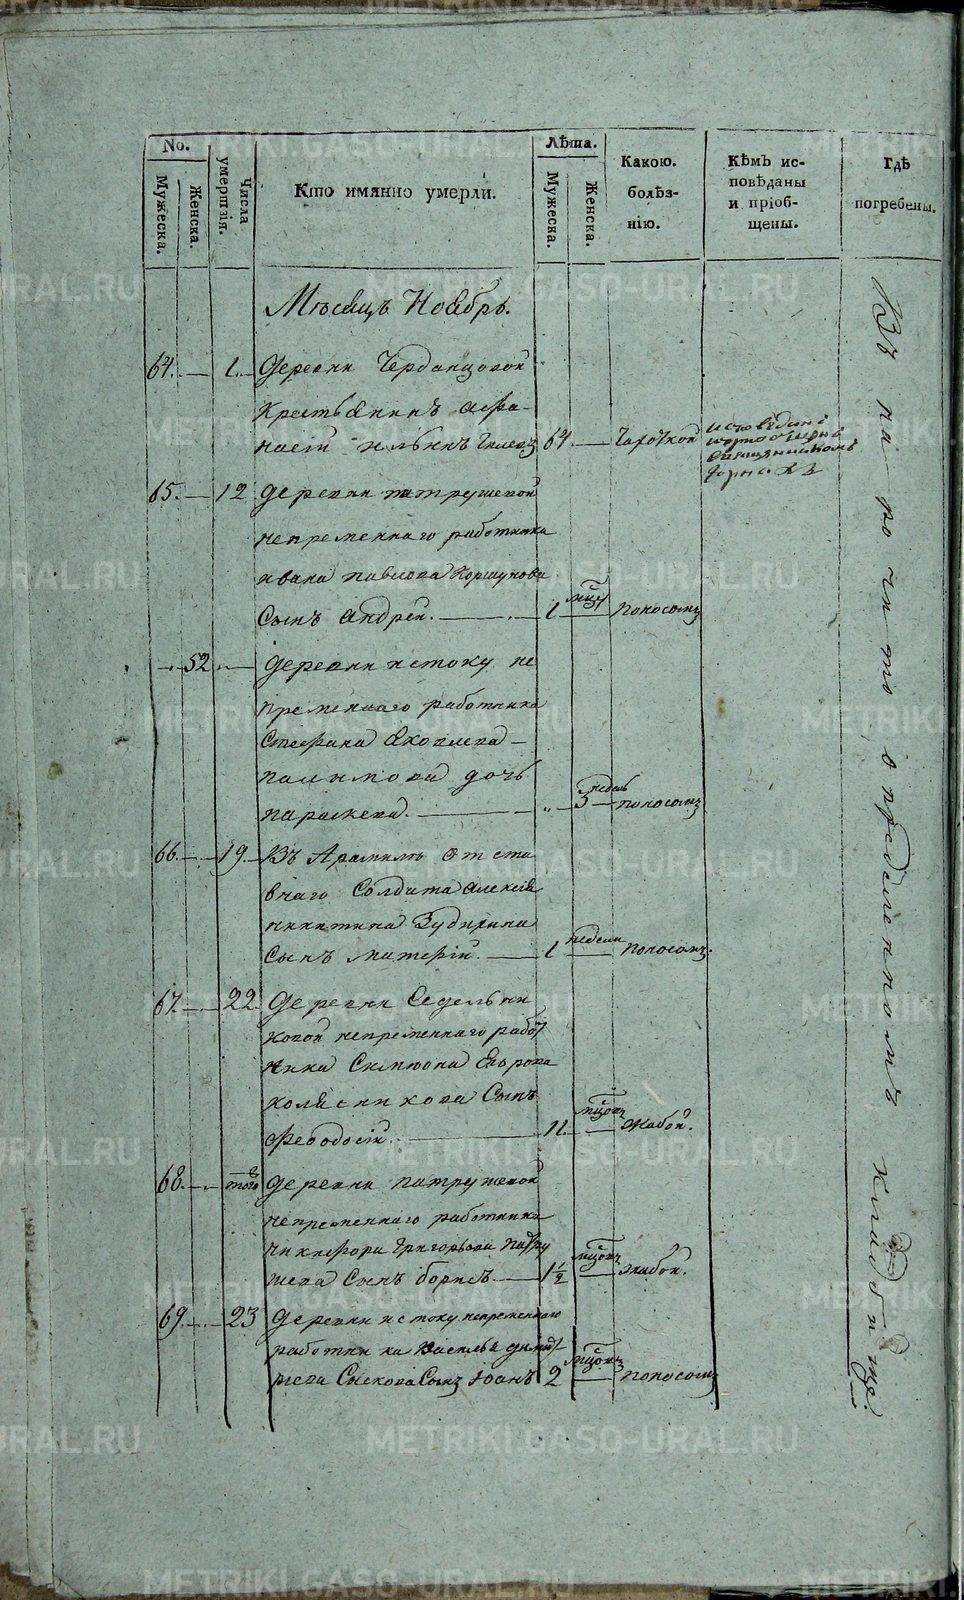 No.
Мужеска.
Женска.
Числа умершїя.
Кто имянно умерли.
Лѣта.
Мужеска.
Женска.
Какою.
болѣз-
нїю.
Кѣмъ ис-
повѣданы
и прїоб-
щены.
Гдѣ
погребены.
Мѣсяцъ Ноябрь.
64. 1. Деревни Черданцовой
крестьянинъ Афа-
насїй Ильинъ 64. Чахоткой
исповѣданъ
священникомъ
65. 12 деревни Патрушевой
непременнаго работника
Ивана Павлова Коршунова
Сынъ Андрей. 1 мцу Поносомъ
52 деревни Истоку не
пременнаго работника
Стефана Яковлева
дочь
Параскева. 3 недель поносомъ
66. 19. Въ Арамиле отста
внаго Солдата Алексїя
Никитина Зудихина
Сынъ 1 недели поносомъ.
67. 22. Деревни Седельни
ковой непременнаго работ
ника Симиона Егорова
Колясникова Сынъ
Феодосїй. 11. мцовъ жабой.
68. того деревни Патрушевой
непременнаго работника
Никифора Григорьева Патру
шева Сынъ Борисъ. 1 1/2 мцовъ жабой.
69. 23 Деревни Истоку непременнаго
работника Василья Димит
рїева Сынъ Іоанъ 2 мцовъ поносомъ
Въ на рочито определенномъ кладбище.
METRIKI.GASO-URAL.RU